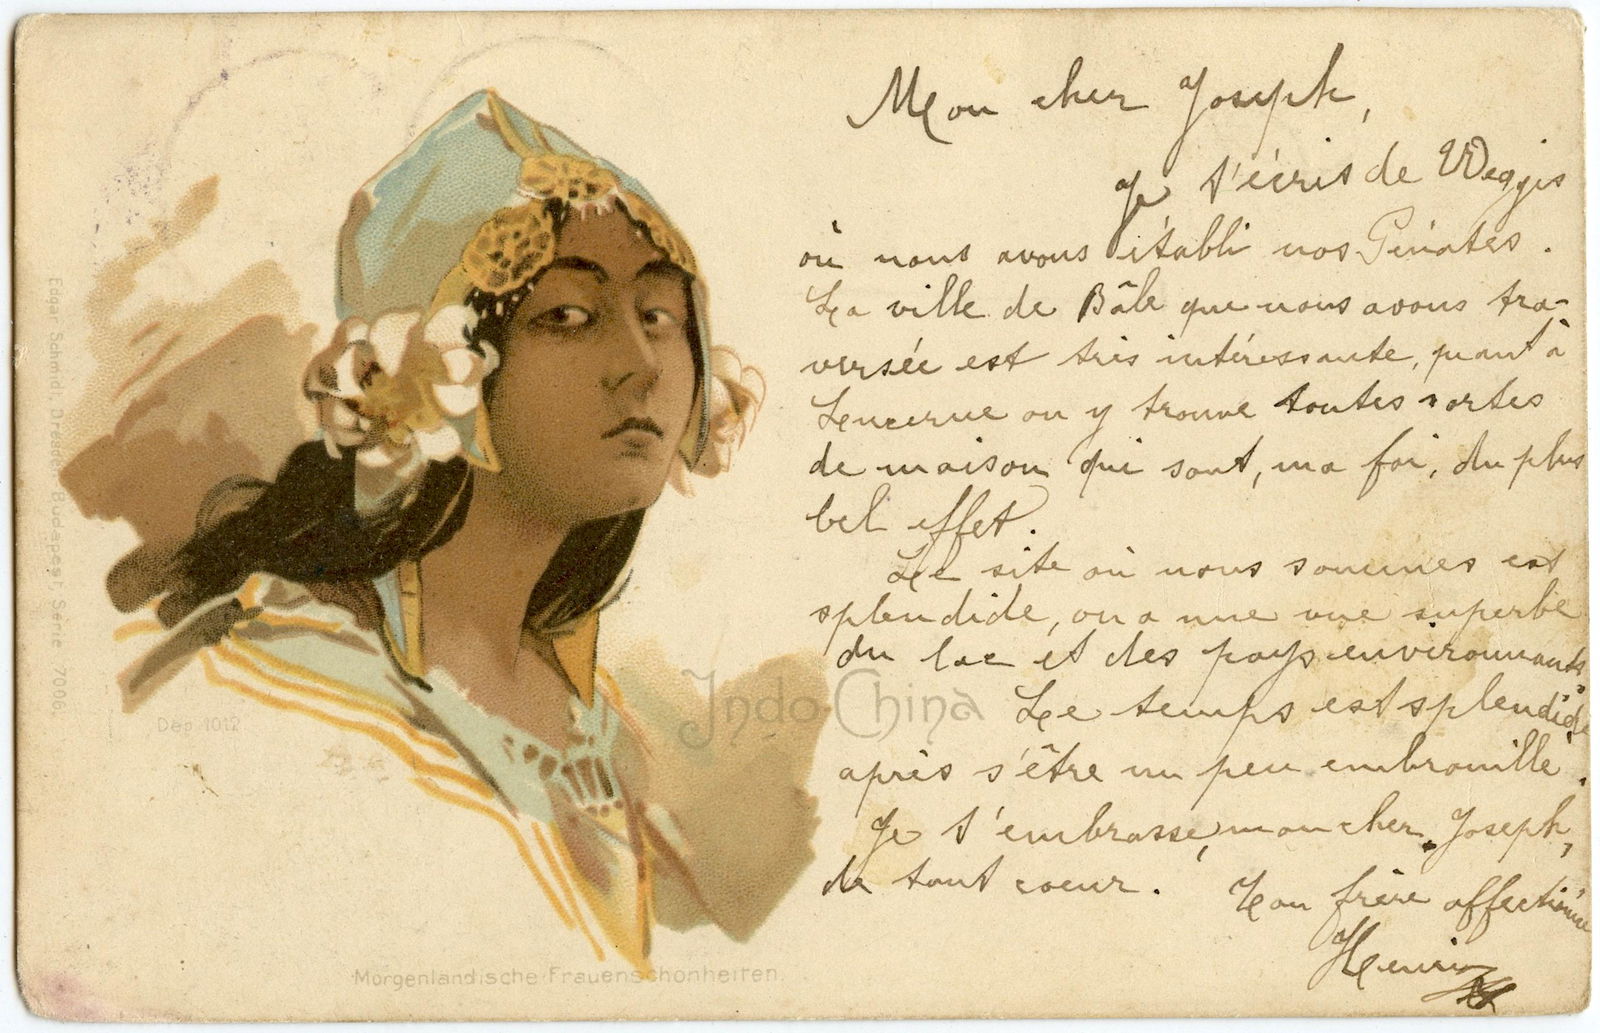 Mon cher Joseph,
Je t'écris de Weggis
où nous avons établi nos Pénates.
La ville de Bâle que nous avons tra-
versée est très intéressante, quant à
Lucerne on y trouve toutes sortes
de maison qui sont, ma foi, du plus
bel effet.
Le site où nous sommes est
splendide, on a une vue superbe
du lac et des pays environnants
Le temps est splendide
après s'être un peu embrouillé.
Je t'embrasse, mon cher Joseph,
de tout coeur. Ton frère affectionné
Henri
Indo-China
Dep 1012
Morgenländische Frauenschönheiten.
Edgar Schmidt, Dresden-Budapest, Serie 7006.